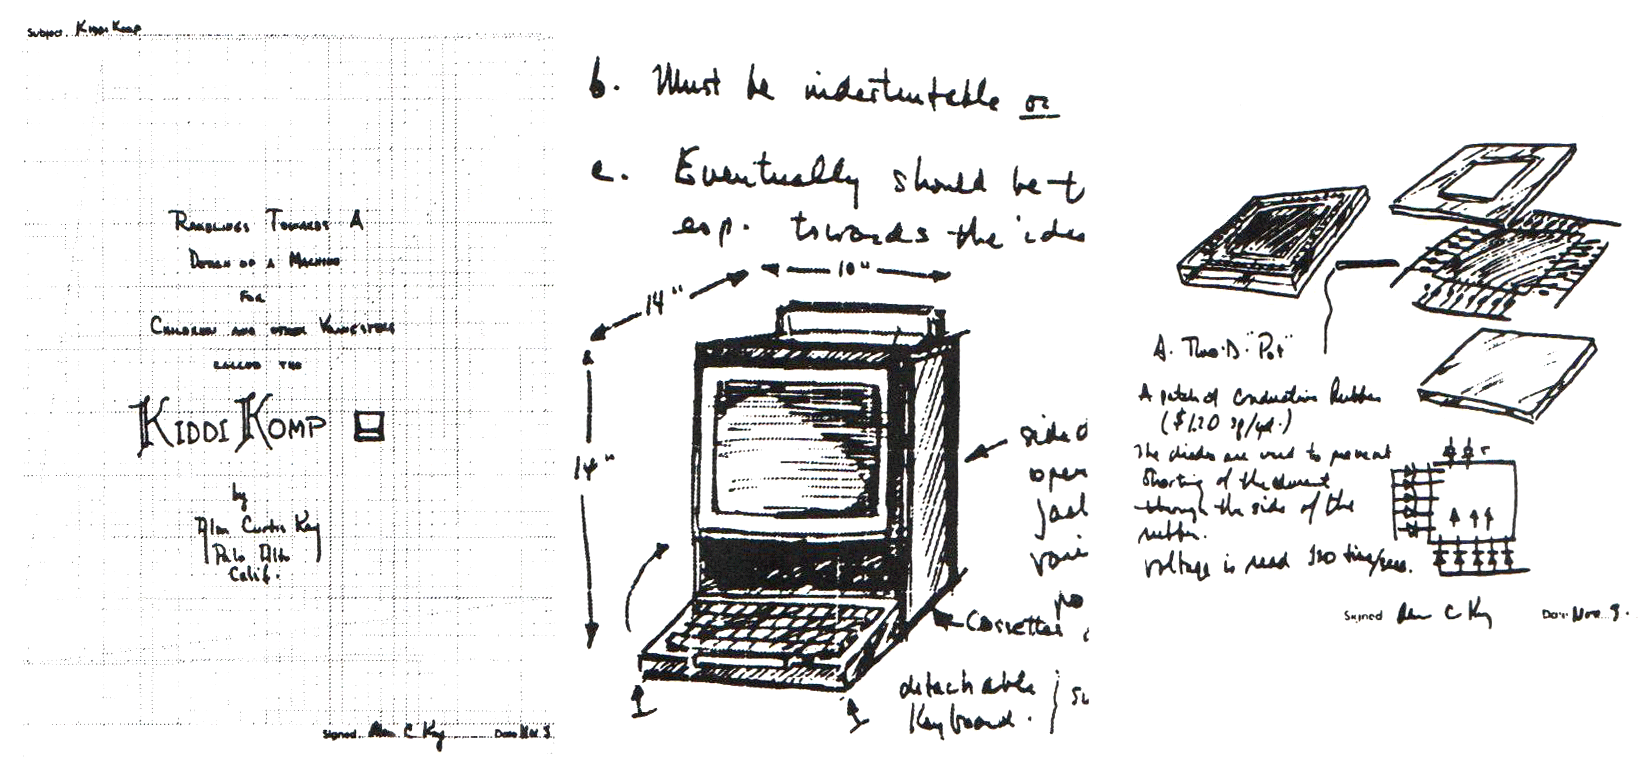 Subject. Kiddi Komp
Ramblings Towards A
Design of a Machine
for
Children and other Youngsters
called the
KIDDI KOMP
by
Alan Curtis Kay
Palo Alto
Calif.
Signed Alan C Kay Date Nov. 3
b. Must be or
c. Eventually should be t
esp. towards the idea
10"
14"
&
14"
side o
open
vari
po
Cassettes
detachable
Keyboard.
A. Two.D. "Pot"
A patch of Conductive Rubber
($1.20 sq/yd.)
The diodes are used to prevent
Shorting of the current
through the side of the
rubber.
Voltage is read 120 times/sec.
Signed Alan C Kay Date Nov. 3.